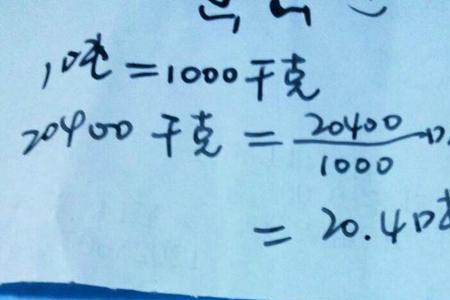 1吨=1000千克
20400千克=20400
1000
=20.4吨